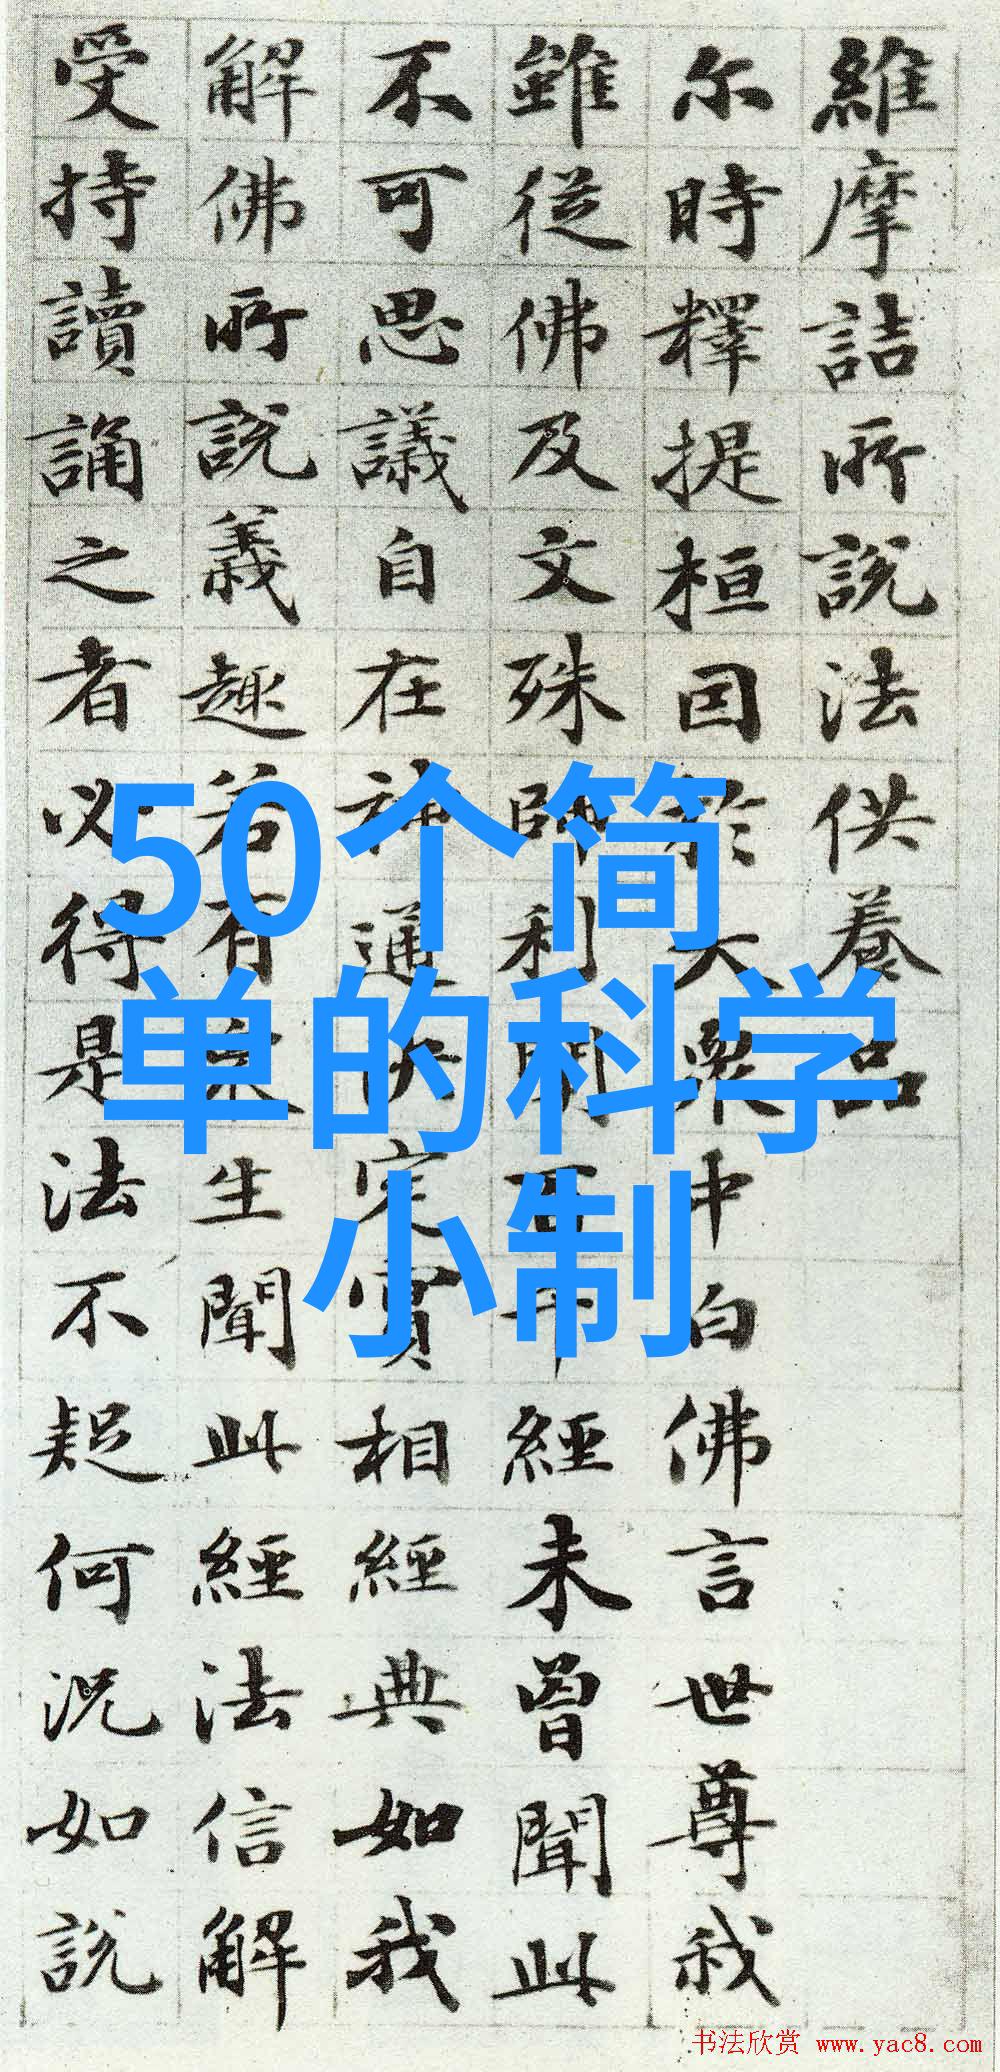 維摩詰所說法供養品
尔時釋提桓因於大衆中白佛言世尊我
雖從佛及文殊師利聞百千經未曾聞此
不可思議自在神通决定實相經典如我
解佛所說義趣若有衆生聞此經法信解
受持讀誦之者必得是法不疑何況如說
50个简
单的科学
小制
书法欣赏 www.yac8.com